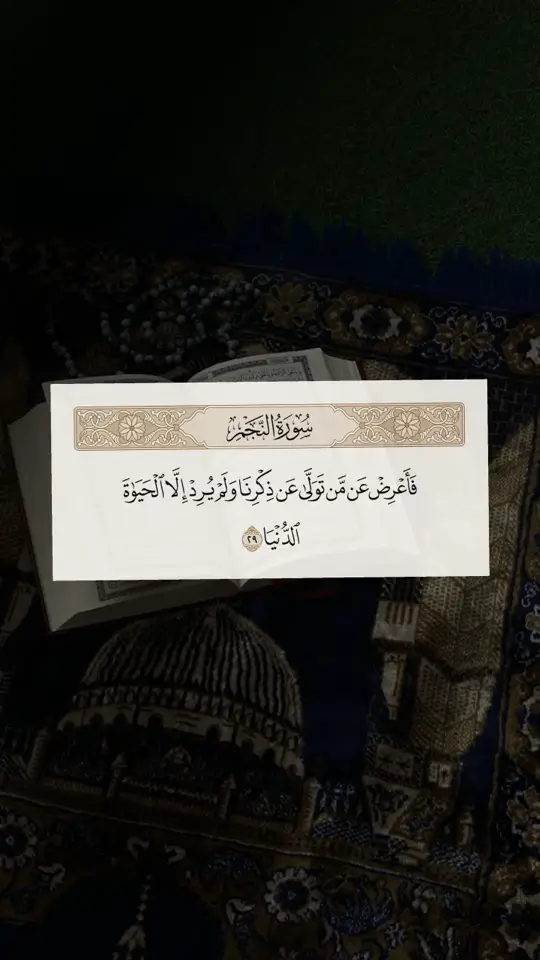 سُورَةُ النَّجْمِ
فَأَعْرِضْ عَن مَّن تَوَلَّىٰ عَن ذِكْرِنَا وَلَمْ يُرِدْ إِلَّا ٱلْحَيَوٰةَ
ٱلدُّنْيَا ٢٩